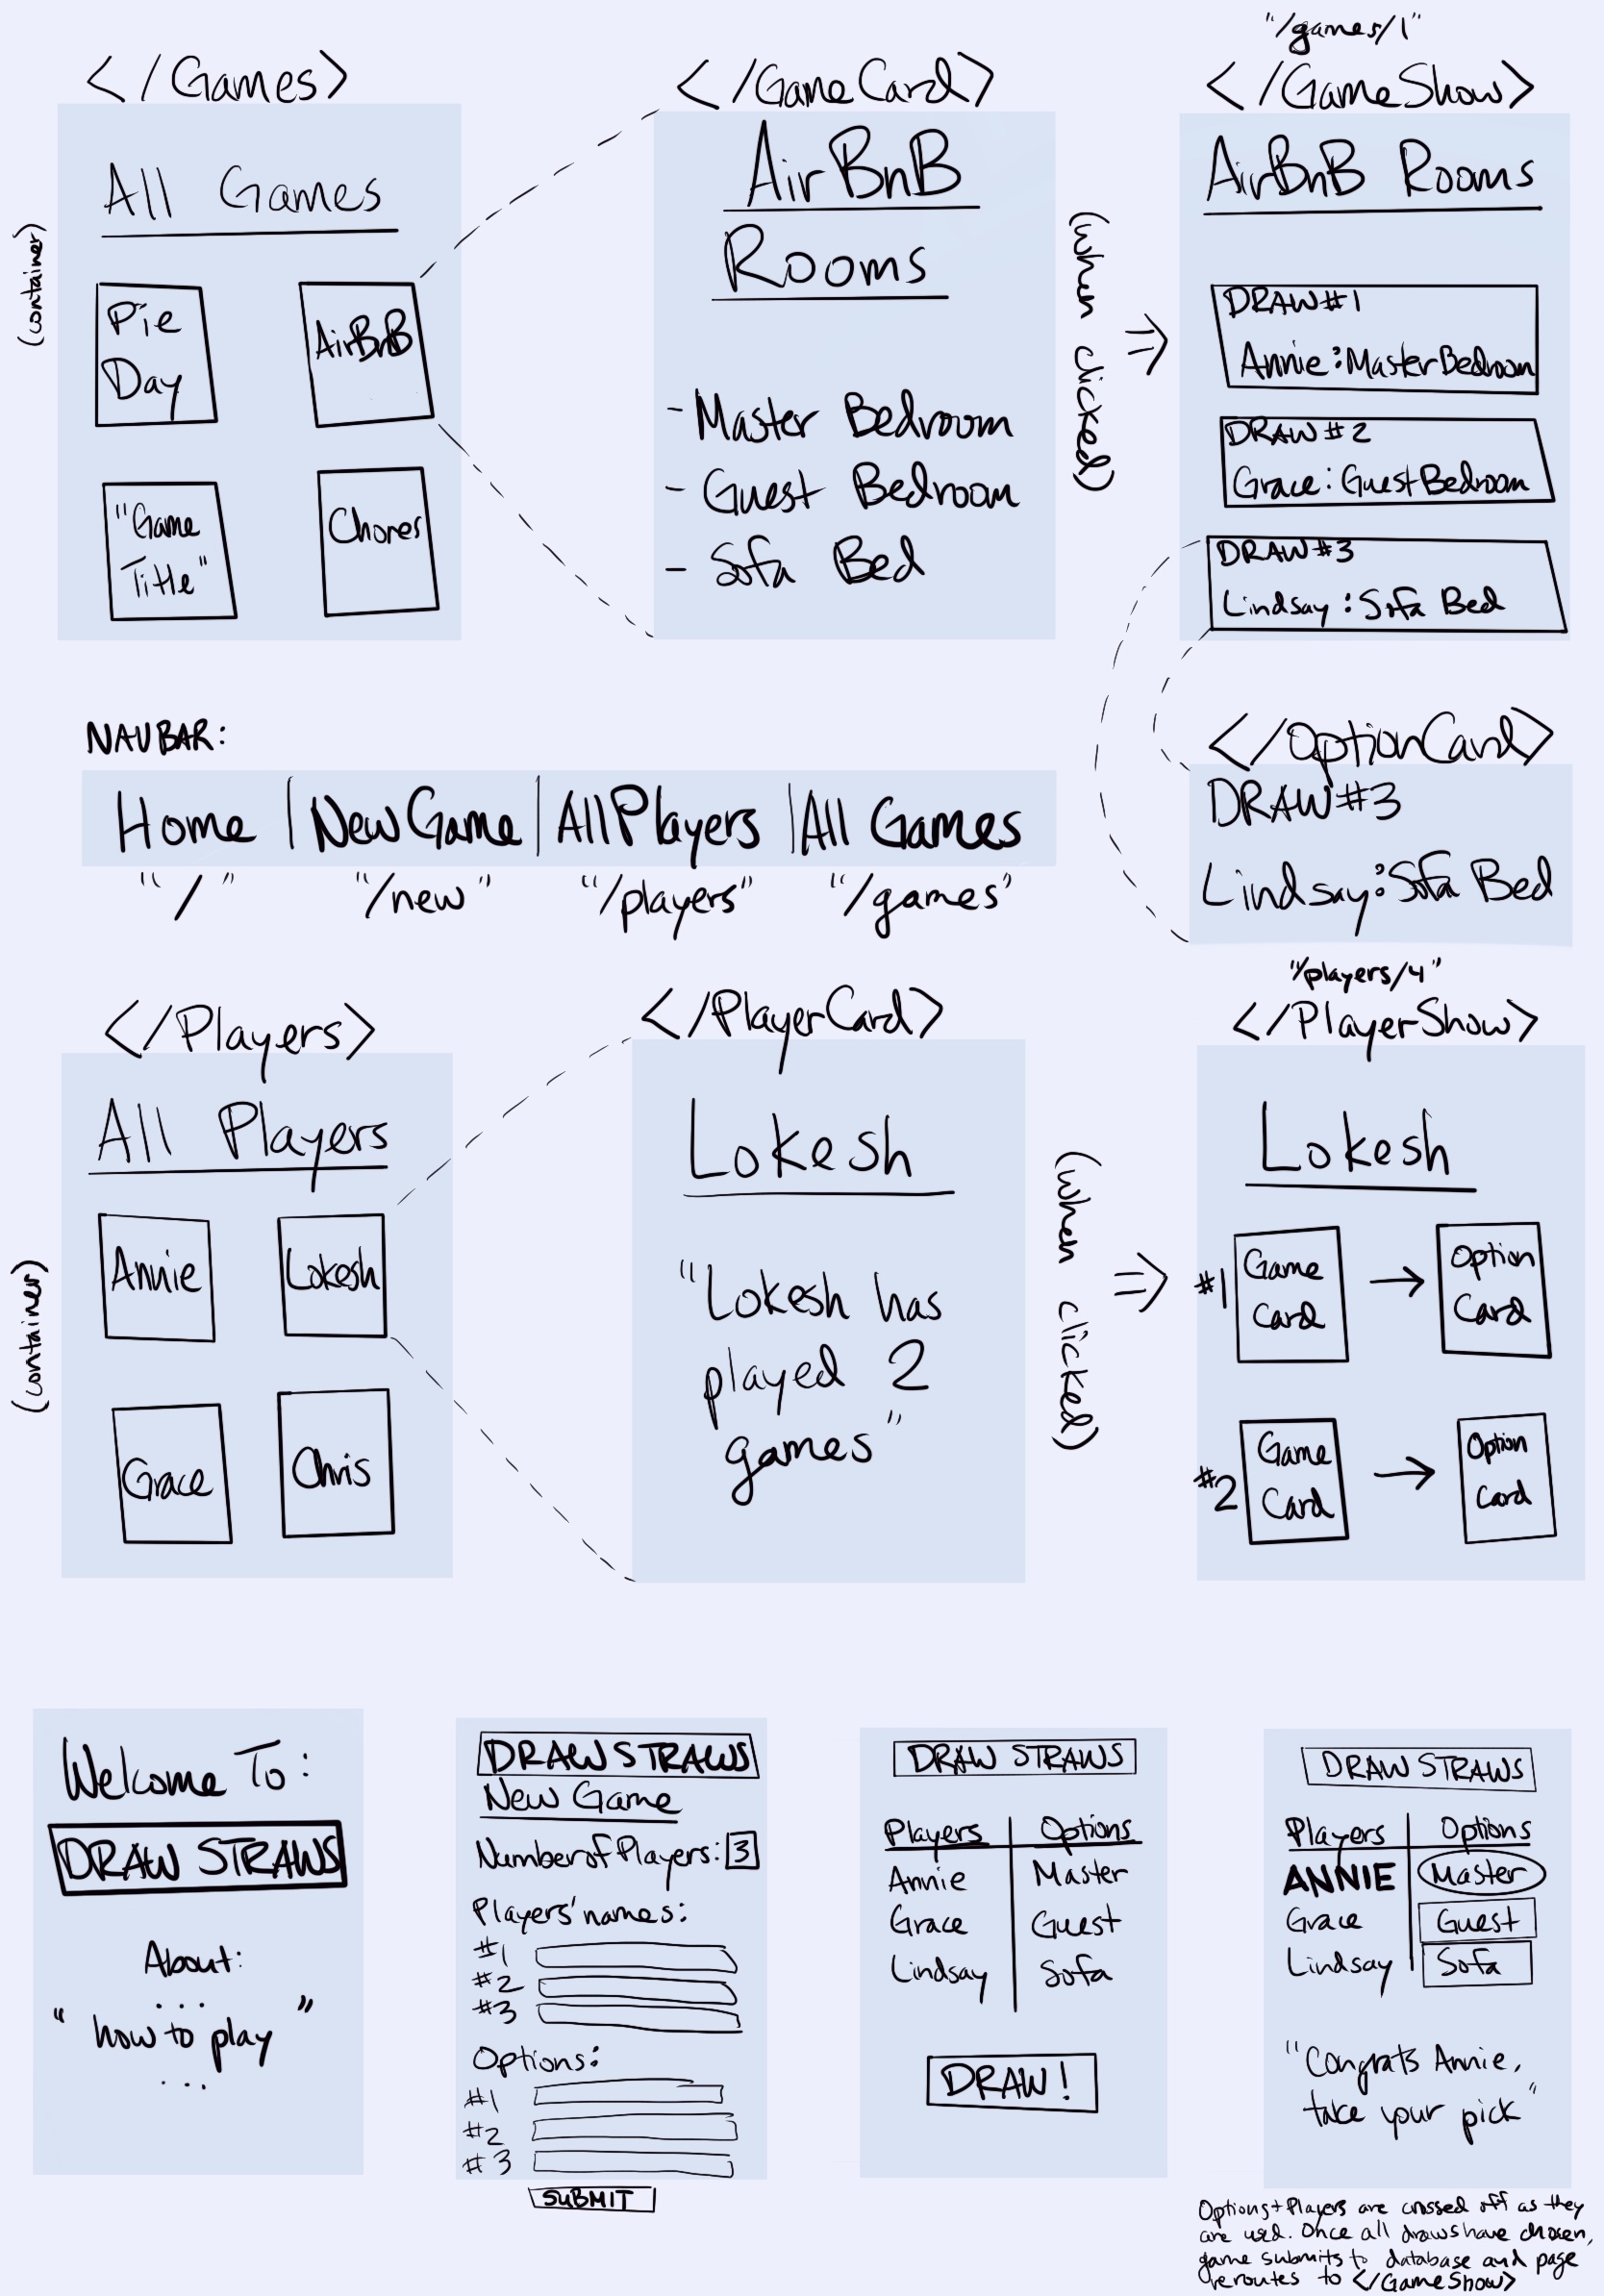 </Games>
(container)
All Games
Pie
Day
AirBnB
"Game
Title"
Chores
</GameCard>
AirBnB
Rooms
- Master Bedroom
- Guest Bedroom
- Sofa Bed
(when clicked)
"/games/1"
</GameShow>
AirBnB Rooms
DRAW #1
Annie: Master Bedroom
DRAW #2
Grace: Guest Bedroom
DRAW #3
Lindsay: Sofa Bed
</OptionCard>
DRAW #3
Lindsay: Sofa Bed
NAVBAR:
Home | New Game | All Players | All Games
"/" "/new" "/players" "/games"
</Players>
(container)
All Players
Annie
Lokesh
Grace
Chris
</PlayerCard>
Lokesh
"Lokesh has
played 2
games"
(when clicked)
"/players/4"
</PlayerShow>
Lokesh
#1
Game
Card
Option
Card
#2
Game
Card
Option
Card
Welcome To:
DRAW STRAWS
About:
...
" how to play "
...
DRAW STRAWS
New Game
Number of Players: 3
Players' names:
#1
#2
#3
Options:
#1
#2
#3
SUBMIT
DRAW STRAWS
Players | Options
Annie Master
Grace Guest
Lindsay Sofa
DRAW!
DRAW STRAWS
Players | Options
ANNIE Master
Grace Guest
Lindsay Sofa
"Congrats Annie,
take your pick"
Options + Players are crossed off as they
are used. Once all draws have chosen,
game submits to database and page
reroutes to </GameShow>